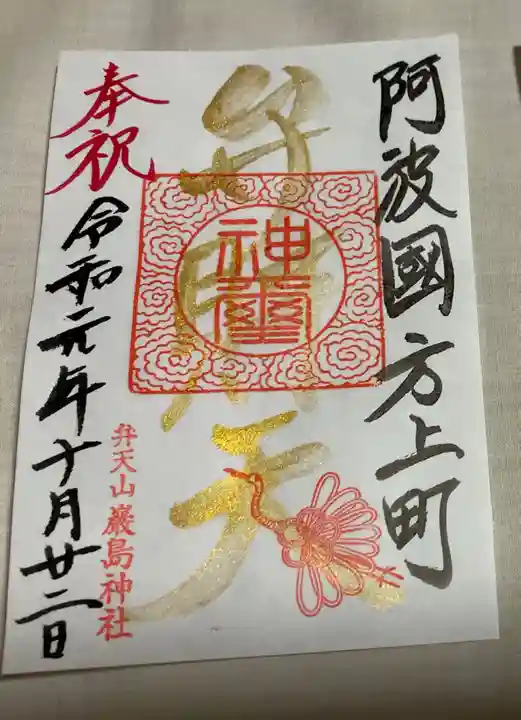 阿波國方上町
弁財天
神璽
奉祝
令和元年十月廿二日
弁天山厳島神社